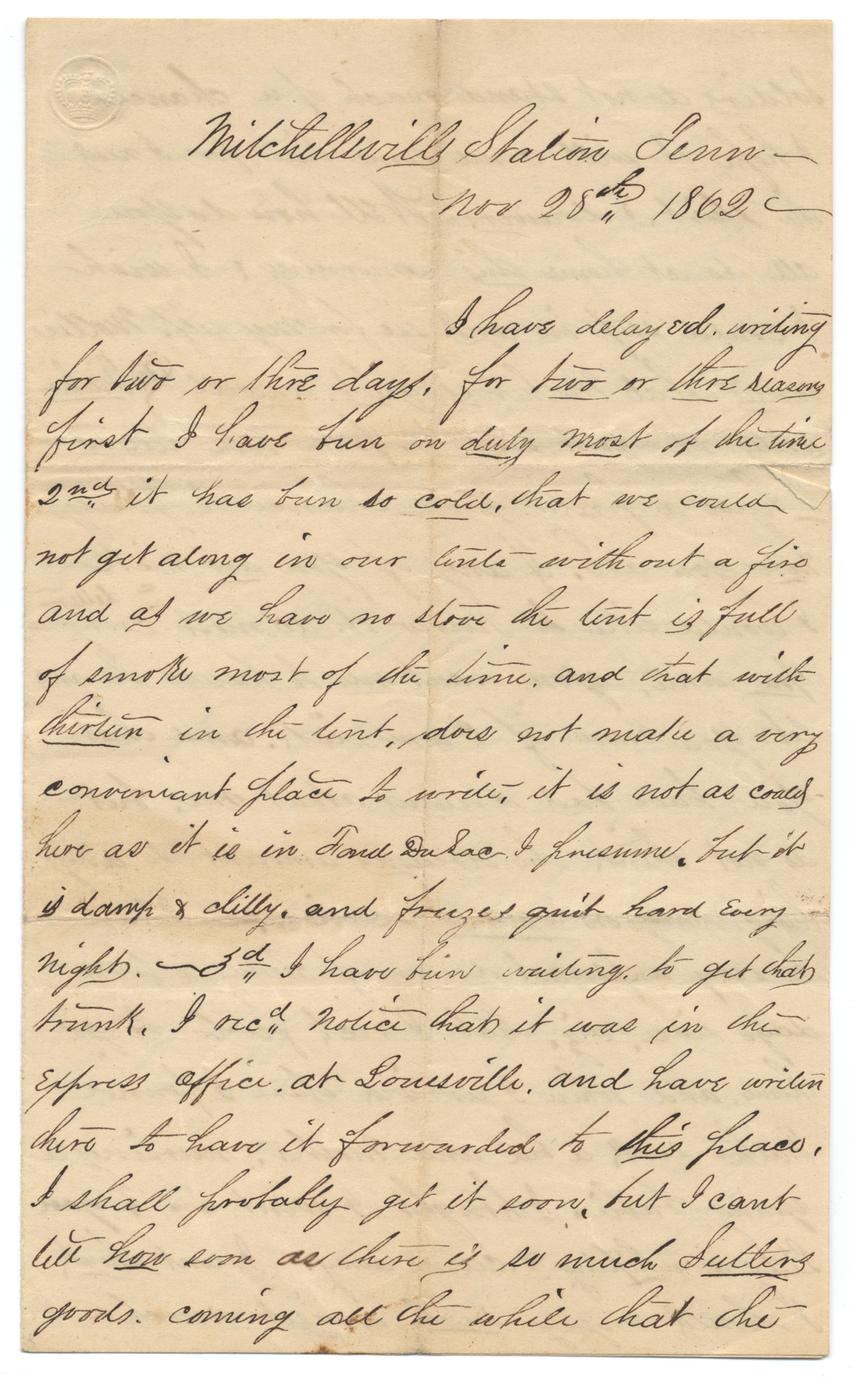 Mitchellsville Station Tenn —
Nov 28th 1862 —
I have delayed. writing
for two or thre days, for two or thre reasons
first I have bun on duty most of the time
2nd it has bun so cold, that we could
not get along in our tents without a fire
and as we have no stove the tent is full
of smoke most of the time. and that with
thirteen in the tent, does not make a very
conveniant place to write, it is not as could
here as it is in Fond DuLac I presume. but it
is damp & chilly. and freezes quit hard every
night. — 3d I have bin waiting. to get that
trunk. I recd notice that it was in the
Express office. at Louisville. and have writen
there to have it forwarded to this place.
I shall probably get it soon, but I cant
tell how soon as there is so much Sutlers
goods. coming all the while that the